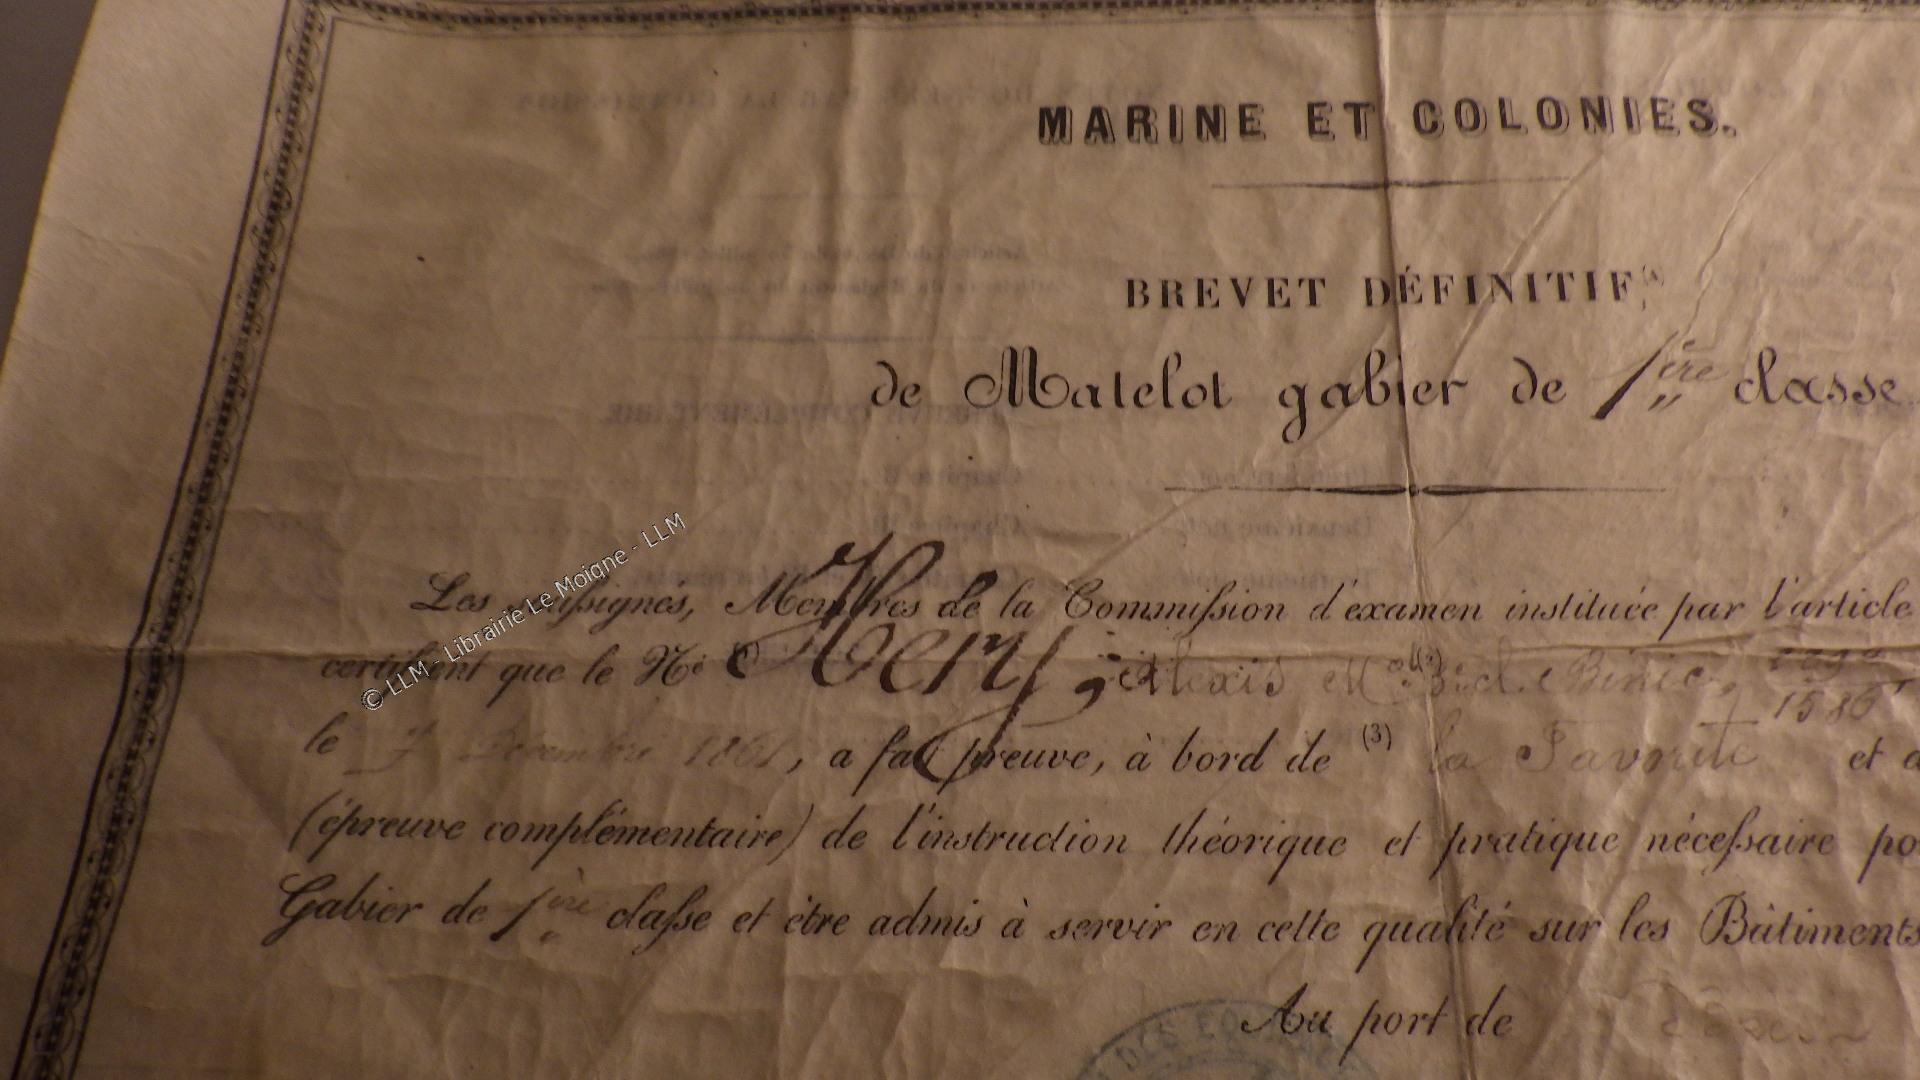 MARINE ET COLONIES.
BREVET DÉFINITIF,
de Matelot gabier de 1ère classe
Les Membres de la Commission d'examen instituée par l'article
certifient que le Né (1) Hery, Alexis Binic, 1586
le 7 Décembre 1861, a fait preuve, à bord de (3) la Favorite et a
(épreuve complémentaire) de l'instruction théorique et pratique nécessaire po
Gabier de 1ère classe et être admis à servir en cette qualité sur les Bâtiments
Au port de
© LLM - Librairie Le Moigne - LLM